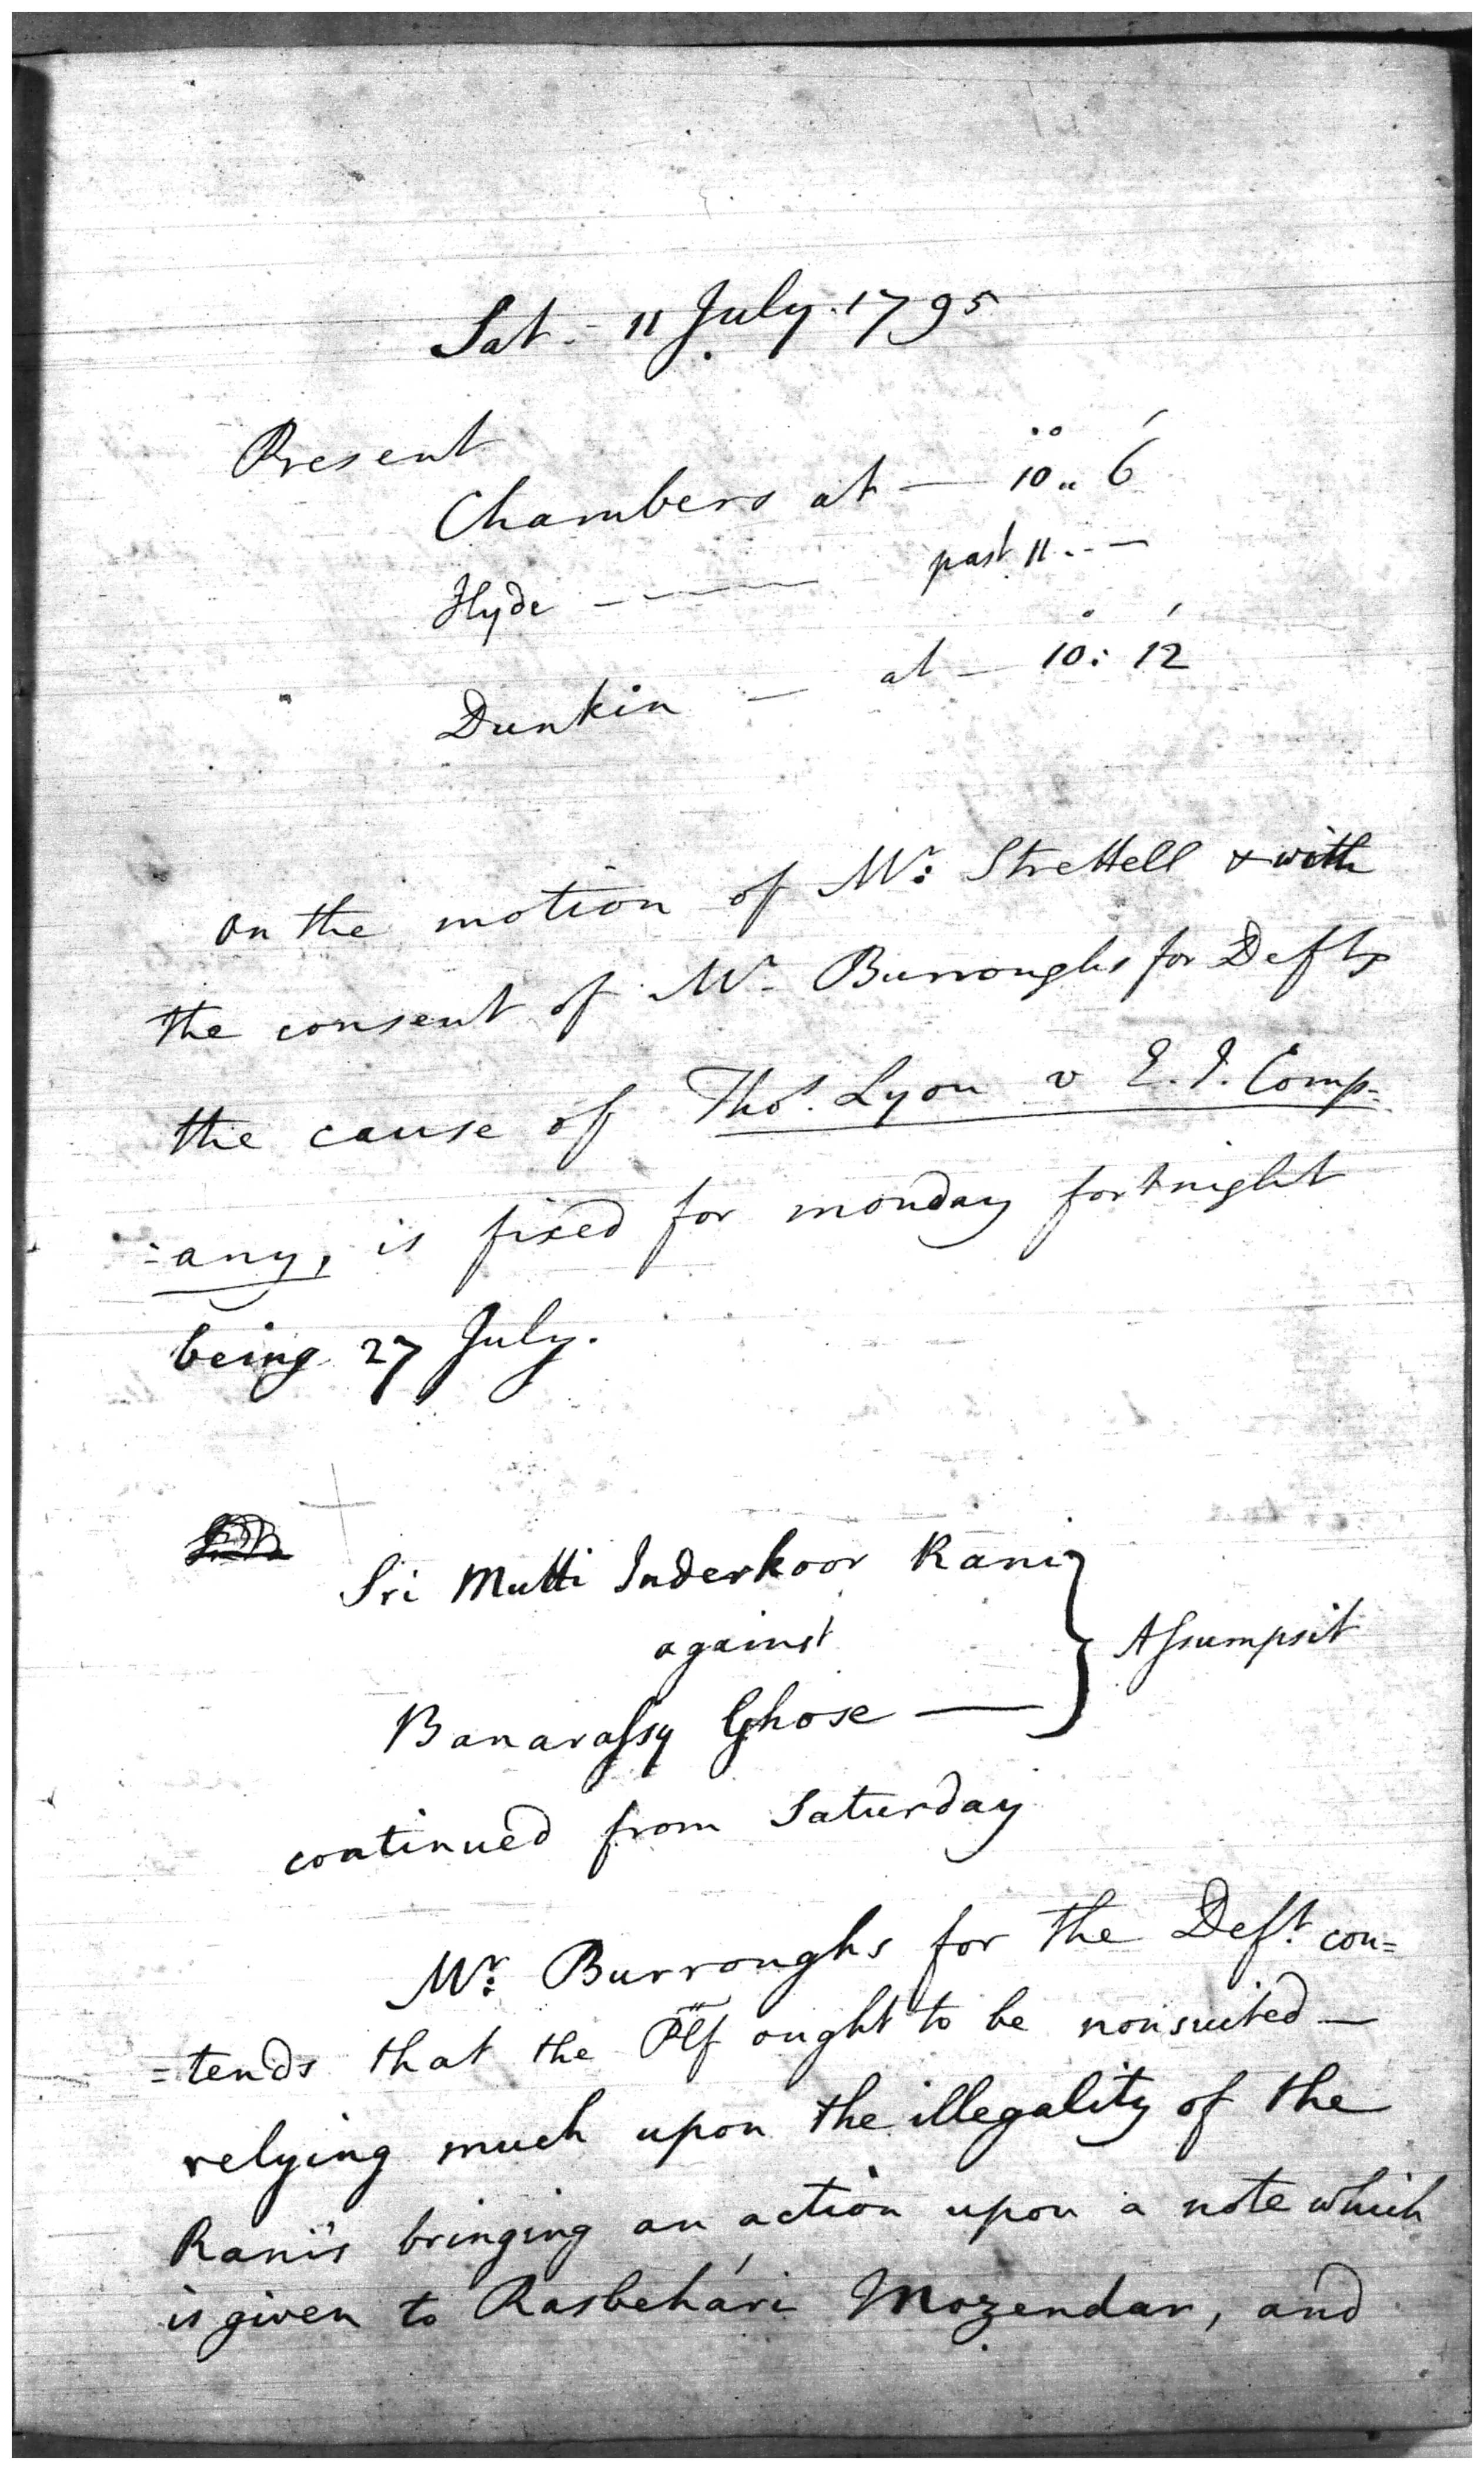 Sat. - 11 July. 1795
Present
Chambers at — 10 „ 6
Hyde ---- past 11 --
Dunkin — at — 10: 12
on the motion of Mr: Strettell & with
the consent of Mr. Burroughs for Defts
the cause of Thos. Lyon v E. I. Comp=
=any, is fixed for monday fortnight
being 27 July.
Sri Mutti Inderkoor Rani
against
Assumpsit
Banarassy Ghose —
continued from Saturday
Mr: Burroughs for the Deft. con=
=tends that the Plf ought to be nonsuited —
relying much upon the illegality of the
Rani's bringing an action upon a note which
is given to Rasbehári Mozendar, and